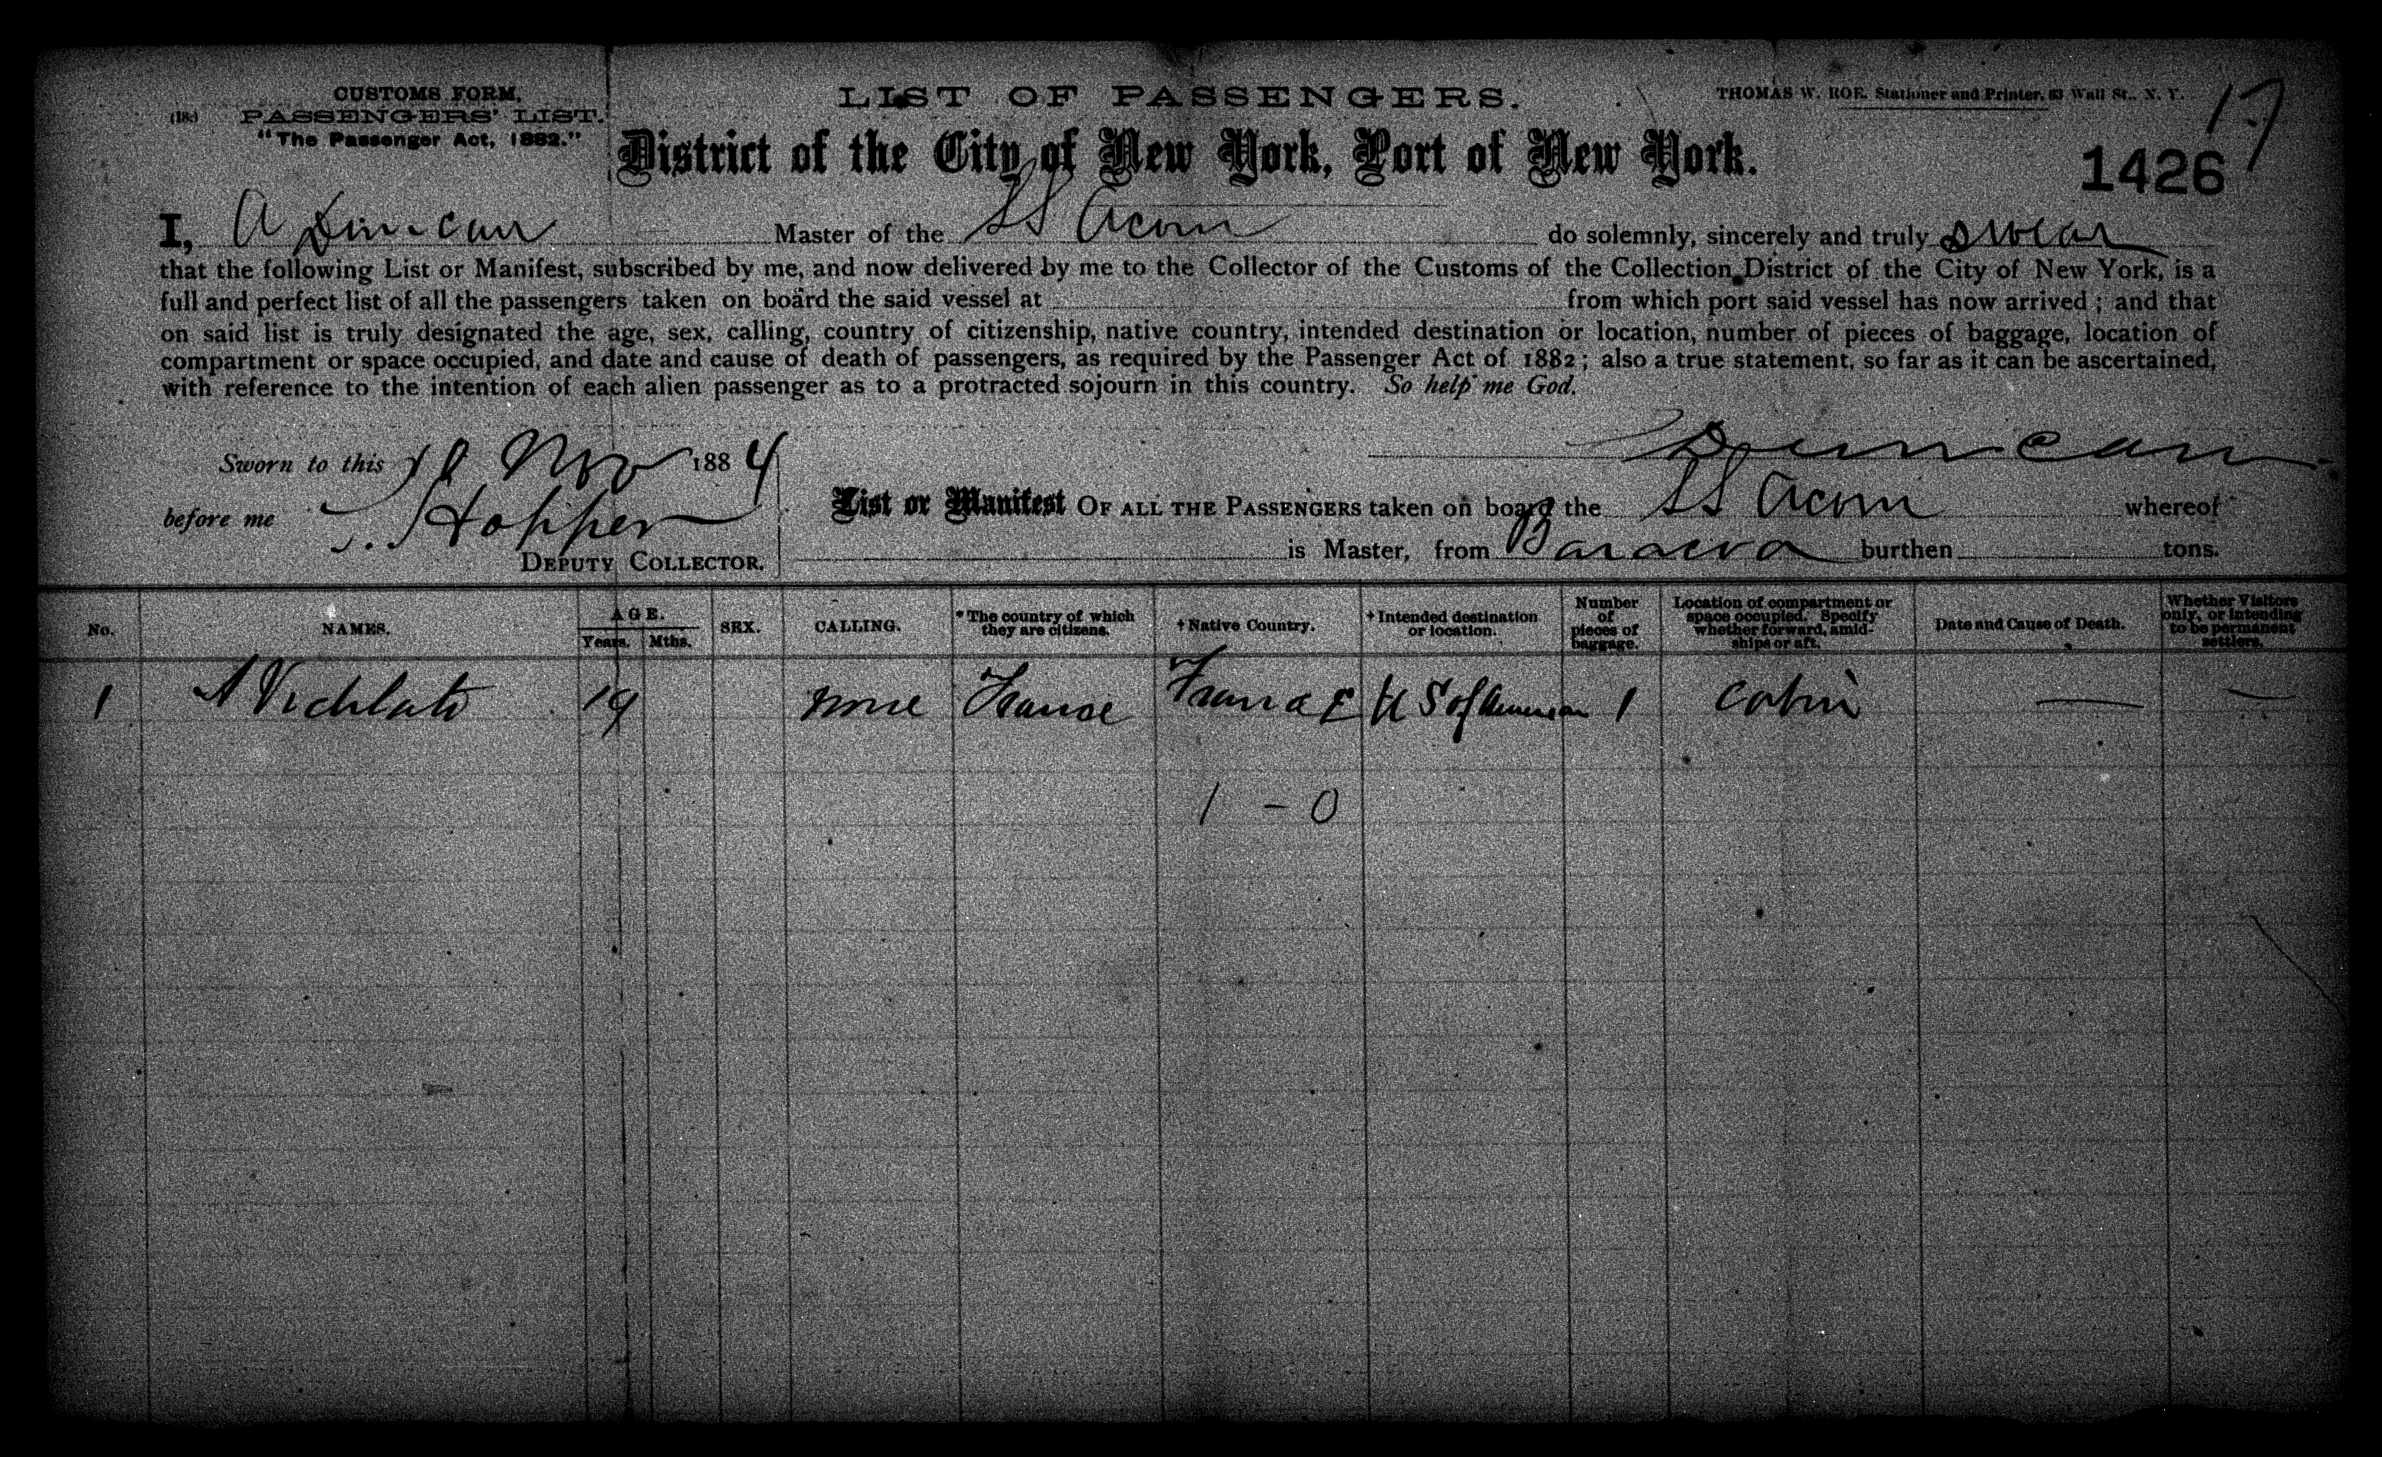 CUSTOMS FORM.
PASSENGERS' LIST.
"The Passenger Act, 1882."
LIST OF PASSENGERS.
THOMAS W. ROE. Stationer and Printer, 63 Wall St., N. Y.
17
District of the City of New York, Port of New York.
1426
I, A Duncan Master of the SS Acorn do solemnly, sincerely and truly swear
that the following List or Manifest, subscribed by me, and now delivered by me to the Collector of the Customs of the Collection District of the City of New York, is a
full and perfect list of all the passengers taken on board the said vessel at from which port said vessel has now arrived ; and that
on said list is truly designated the age, sex, calling, country of citizenship, native country, intended destination or location, number of pieces of baggage, location of
compartment or space occupied, and date and cause of death of passengers, as required by the Passenger Act of 1882 ; also a true statement, so far as it can be ascertained,
with reference to the intention of each alien passenger as to a protracted sojourn in this country. So help me God.
Duncan
Sworn to this 18 Nov 1884
before me Hopper
DEPUTY COLLECTOR.
List or Manifest OF ALL THE PASSENGERS taken on board the SS Acorn whereof
is Master, from Baracoa burthen tons.
No. NAMES. AGE. Years. Mths. SEX. CALLING. *The country of which they are citizens. †Native Country. †Intended destination or location. Number of pieces of baggage. Location of compartment or space occupied. Specify whether forward, amidships or aft. Date and Cause of Death. Whether Visitors only, or intending to be permanent settlers.
1 A 19 none France France U S of American 1 cabin — —
1 - 0